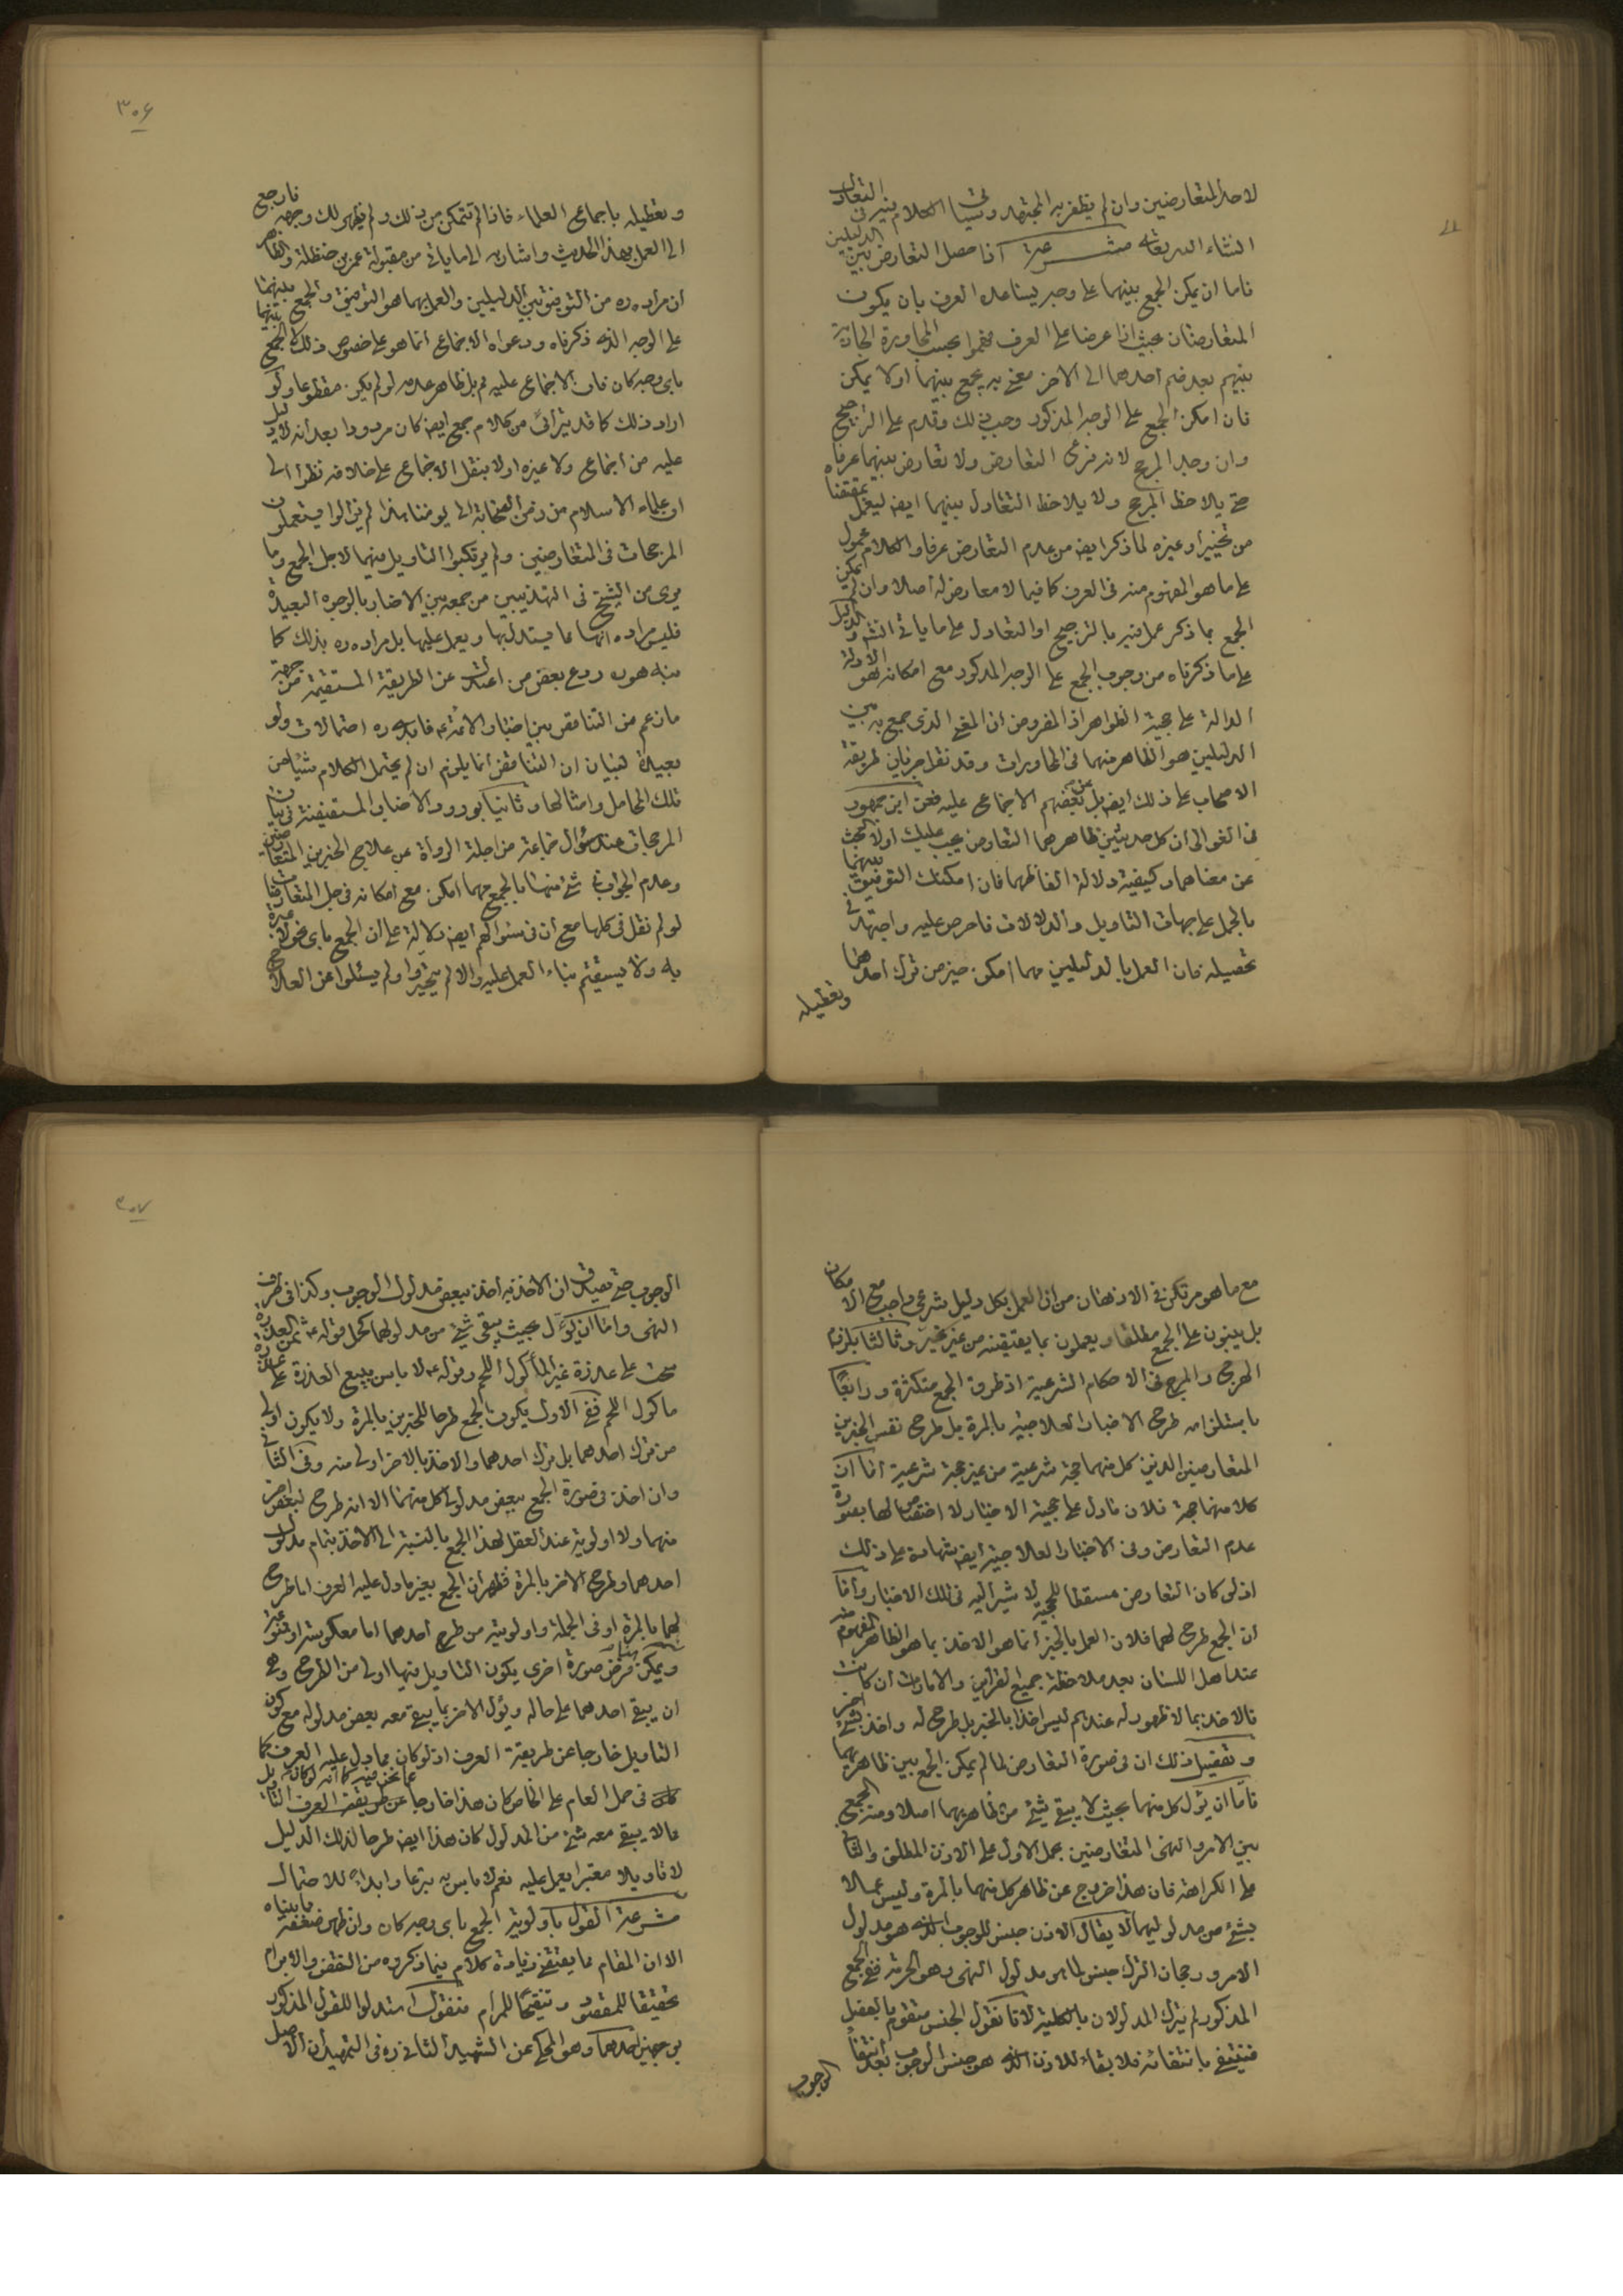 لاحد المتعارضين وان لم يظفر به المجتهد وسياتى الكلام فيه فى التعادل
انشاء الله تعالى مشرعة اذا حصل التعارض بين الدليلين
فاما ان يمكن الجمع بينهما على وجه يساعده العرف بان يكون
المتعارضان بحيث اذا عرضا على العرف فهموا بحسب المحاورة الجارية
بينهم بعد ضم احدهما الى الاخر معنى به يجمع بينهما او لا يمكن
فان امكن الجمع على الوجه المذكور وجب ذلك وقدم على الترجيح
وان وجد المرجح لانه فرع التعارض ولا تعارض بينهما عرفا
حتى يلاحظ المرجح ولا يلاحظ التعادل بينهما ايضا ليعمل بمقتضا
من تخيير او غيره لما ذكر ايضا من عدم التعارض عرفا والكلام محمول
على ما هو المفهوم منه فى العرف كما فيما لا معارض له اصلا وان لم يمكن
الجمع بما ذكر عمل فيه بالترجيح او التعادل على ما ياتى انشه والدليل
على ما ذكرناه من وجوب الجمع على الوجه المذكور مع امكانه هو الادلة
الدالة على حجية الظواهر اذ المفروض ان المعنى الذى جمع به بين
الدليلين هو الظاهر منهما فى المحاورات وقد نقل جريان طريقة
الاصحاب على ذلك ايضا بل عن بعضهم الاجماع عليه فعن ابن جمهور
فى الغوالى ان كل حديثين ظاهرهما التعارض يجب عليك اولا البحث
عن معناهما وكيفية دلالة الفاظهما فان امكنك التوفيق بينهما
بالحمل على جهات التاويل والدلالات فاحرص عليه واجتهد فى
تحصيله فان العمل بالدليلين مهما امكن خير من ترك احدهما
وتعطيله
٣٠۶
وتعطيله باجماع العلماء فاذا لم تتمكن من ذلك ولم يظهر لك وجهه فارجع
الى العمل بهذا الحديث واشار به الى ما ياتى من مقبولة عمر بن حنظلة والظاهر
ان مراده ره من التوفيق بين الدليلين والعمل بهما هو التوفيق والجمع بينهما
على الوجه الذى ذكرناه ودعواه الاجماع انما هو على خصوص ذلك لا الجمع
باى وجه كان فان الاجماع عليه مم بل ظاهر عدمه لو لم يكن مقطوعا ولو
اراد ذلك كما قد يترائى من كلام جمع ايضا كان مردودا بعد انه لا دليل
عليه من اجماع ولا غيره اولا بنقل الاجماع على خلافه نظرا الى
ان علماء الاسلام من زمن الصحابة الى يومنا هذا لم يزالوا يستعملون
المرجحات فى المتعارضين ولم يرتكبوا التاويل فيهما لاجل الجمع وما
يرى من الشيخ فى التهذيبين من جمعه بين الاخبار بالوجوه البعيدة
فليس مراده انها مما يستدل بها ويعمل عليها بل مراده ره بذلك كما
نبه هو ردع بعض من اعتدل عن الطريقة المستقيمة من جهة
ما زعم من التناقض بين اخبار الائمة ع فابدى ره احتمالات ولو
بعيدة لبيان ان التناقض انما يلزم ان لم يحتمل الكلام شيئا من
تلك المحامل وامثالها وثانيا بورود الاخبار المستفيضة فى بيان
المرجحات عند سؤال جماعة من اجلة الرواة عن علاج الخبرين المتعارضين
وعدم الجواب فى شئ منها بالجمع مهما امكن مع امكانه فى جل المتعارضات
لو لم نقل فى كلها مع ان فى سؤالهم ايضا دلالة على ان الجمع باى نحو لا عبرة
به ولا يستقيم بناء العمل عليه والا لم يتحيروا ولم يسئلوا عن العلاج
مع ما هو مرتكز فى الاذهان من ان العمل بكل دليل شرعى واجب مع الامكان
بل يبنون على الجمع مطلقا ويعملون بما يقتضيه من غير تحير وثالثا بلزوم
الهرج والمرج فى الاحكام الشرعية اذ طرق الجمع متكثرة ورابعا
باستلزامه طرح الاخبار العلاجية بالمرة بل طرح نفس الخبرين
المتعارضين الذين كل منهما حجة شرعية من غير حجة شرعية اما ان
كلا منهما حجة فلان ما دل على حجية الاخبار لا اختصاص لها بصورة
عدم التعارض وفى الاخبار العلاجية ايضا شهادة على ذلك
اذ لو كان التعارض مسقطا للحجية لاشير اليه فى تلك الاخبار واما
ان الجمع طرح لهما فلان العمل بالخبر انما هو الاخذ بما هو الظاهر المفهوم منه
عند اهل اللسان بعد ملاحظة جميع القراين والامارات ان كانت
فالاخذ بما لا ظهور له عندهم ليس اخذا بالخبر بل طرح له واخذ بشئ اخر
وتفصيل ذلك ان فى صورة التعارض لما لم يمكن الجمع بين ظاهريهما
فاما ان يؤل كل منهما بحيث لا يبقى شئ من ظاهريهما اصلا ومنه الجمع
بين الامر والنهى المتعارضين بحمل الاول على الاذن المطلق والثانى
على الكراهة فان هذا خروج عن ظاهر كل منهما بالمرة وليس عملا
بشئ من مدلوليهما لا يقال الاذن جنس للوجوب الذى هو مدلول
الامر ورجحان الترك جنس لما هو مدلول النهى وهو الحرمة ففى الجمع
المذكور لم يترك المدلولان بالكلية لانا نقول الجنس متقوم بالفصل
فينتفى بانتفائه فلا بقاء للاذن الذى هو جنس الوجوب بعد انتفاء
الوجوب
٣٠٧
الوجوب حتى يصدق ان الاخذ به اخذ ببعض مدلول الوجوب وكذا فى طرف
النهى واما ان يؤل بحيث يبقى شئ من مدلولهما كحمل قوله ع ثمن العذرة
سحت على عذرة غير المأكول اللحم وقوله ع لا باس ببيع العذرة على عذرة
ماكول اللحم ففى الاول يكون الجمع طرحا للخبرين بالمرة ولا يكون اولى
من ترك احدهما بل ترك احدهما والاخذ بالاخر اولى منه وفى الثانى
وان اخذ فى صورة الجمع ببعض مدلولى كل منهما الا انه طرح لبعض اخر
منهما ولا اولوية عند العقل لهذا الجمع بالنسبة الى الاخذ بتمام مدلول
احدهما وطرح الاخر بالمرة فظهر ان الجمع بغير ما دل عليه العرف اما طرح
لهما بالمرة او فى الجملة واولويته من طرح احدهما اما معكوسة او ممنوعة
ويمكن فرض صورة اخرى يكون التاويل فيها اولى من الطرح وهى
ان يبقى احدهما على حاله ويؤل الاخر بما يبقى معه بعض مدلوله مع كون
التاويل خارجا عن طريقة العرف اذ لو كان مما دل عليه العرف كما
فى حمل العام على الخاص كان هذا خارجا عما نحن فيه كما انه لو كان التاويل
مما لا يبقى معه شئ من المدلول كان هذا ايضا طرحا لذلك الدليل
لا تاويلا معتبرا يعمل عليه نعم لا باس به تبرعا وابداء للاحتمال
مشرعة القول باولوية الجمع باى وجه كان وان ظهر ضعفه بما بيناه
الا ان المقام مما يقتضى زيادة كلام فيما ذكروه من النقض والابرام
تحقيقا للمقصود وتنقيحا للمرام فنقول استدلوا للقول المذكور
بوجهين احدهما وهو المحكى عن الشهيد الثانى ره فى التمهيد ان الاصل